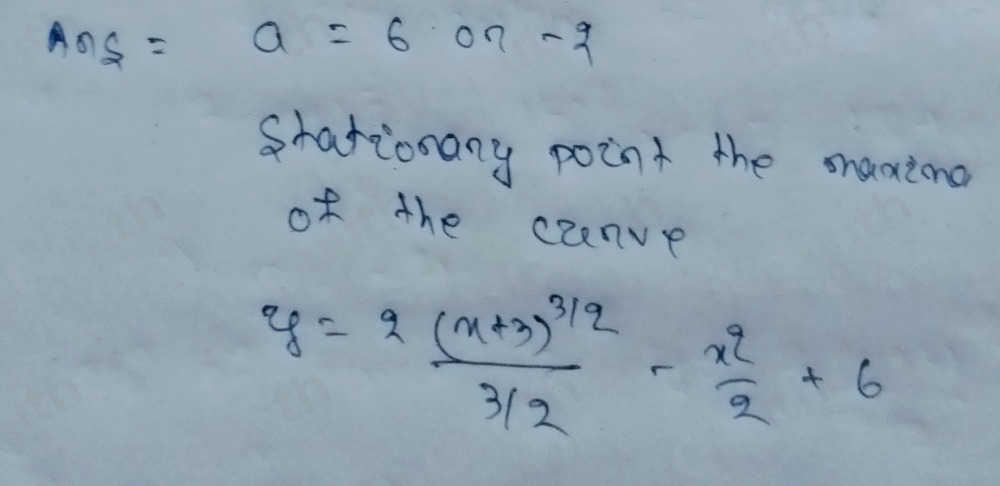 Ans = a = 6 or -2
Stationary point the maxima
of the curve
y = 2 (x+3)^3/2 / 3/2 - x^2/2 + 6